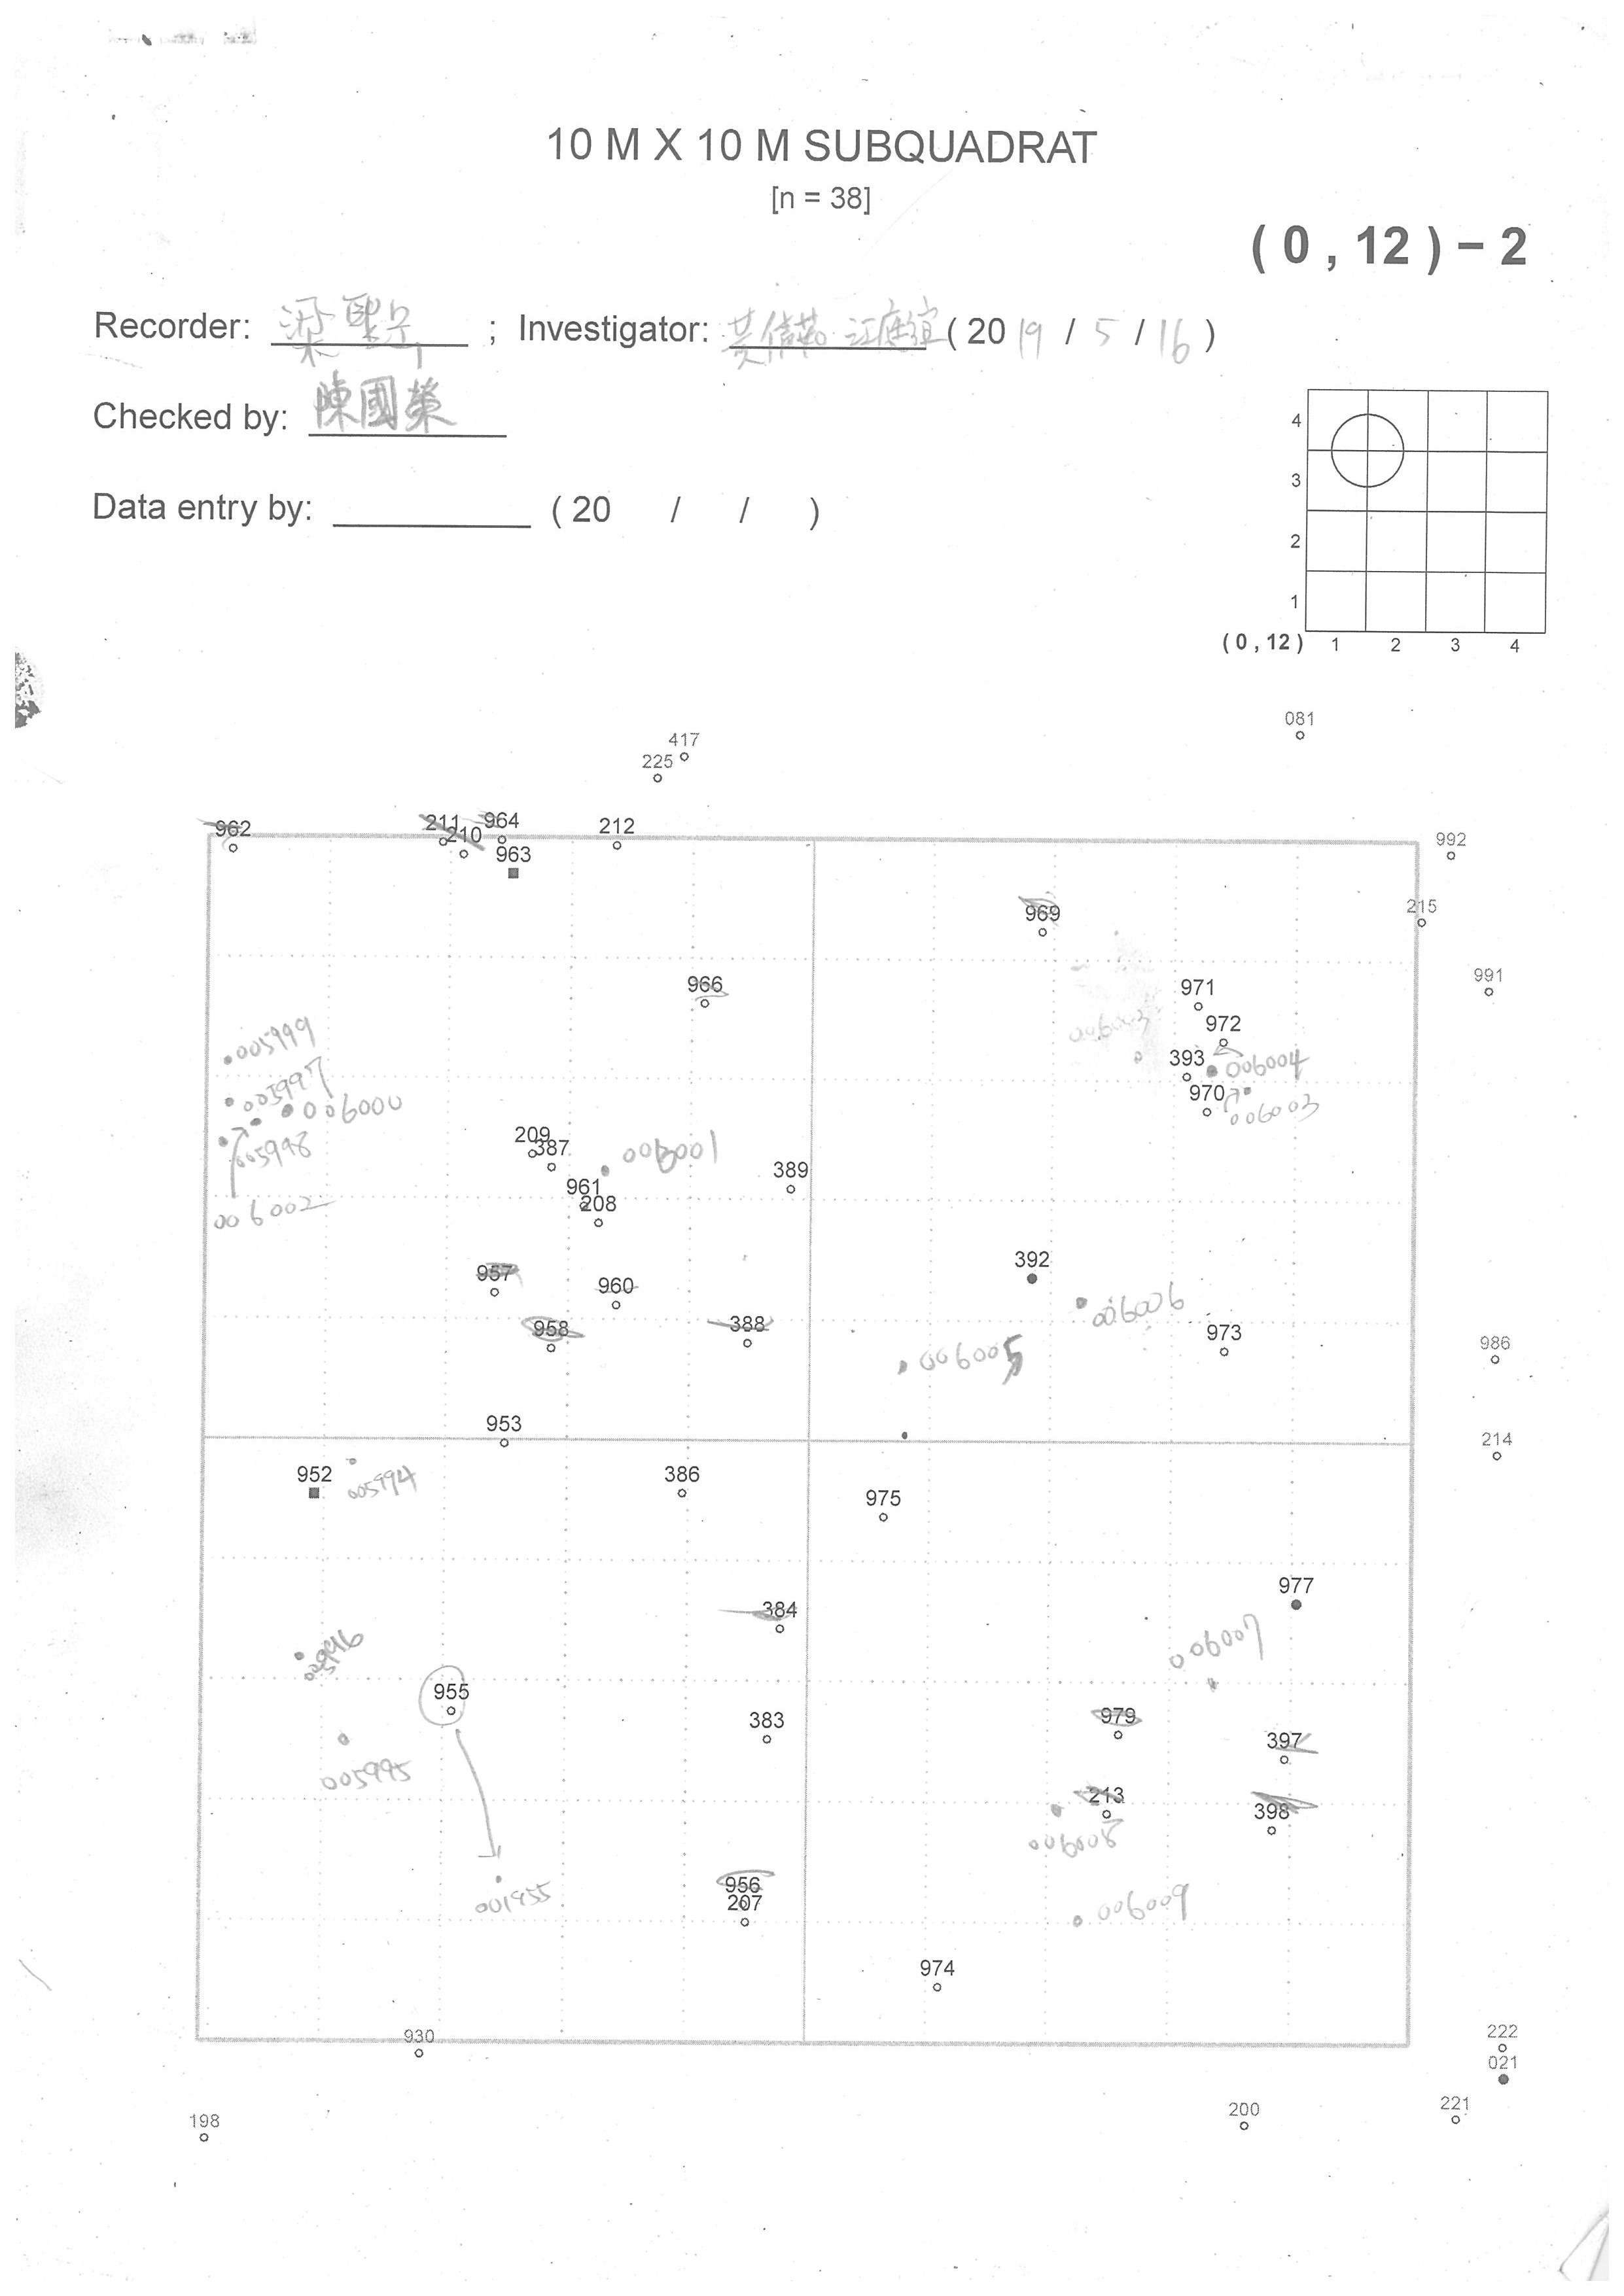 10 M X 10 M SUBQUADRAT
[n = 38]
( 0 , 12 ) − 2
Recorder: ; Investigator: ( 20 19 / 5 / 16 )
Checked by: 陳國榮
Data entry by: ( 20 / / )
4
3
2
1
( 0 , 12 ) 1 2 3 4
081
417
225
962
211
964
210
212
963
992
969
215
966
971
991
972
005999
006003
393
006004
005997
006000
970
006003
209
387
005998
006001
389
961
208
006002
392
957
960
006006
958
388
973
006005
986
953
214
952
005994
386
975
977
384
006007
005996
955
383
979
397
005995
213
398
006008
956
001955
207
006009
974
930
222
021
198
200
221